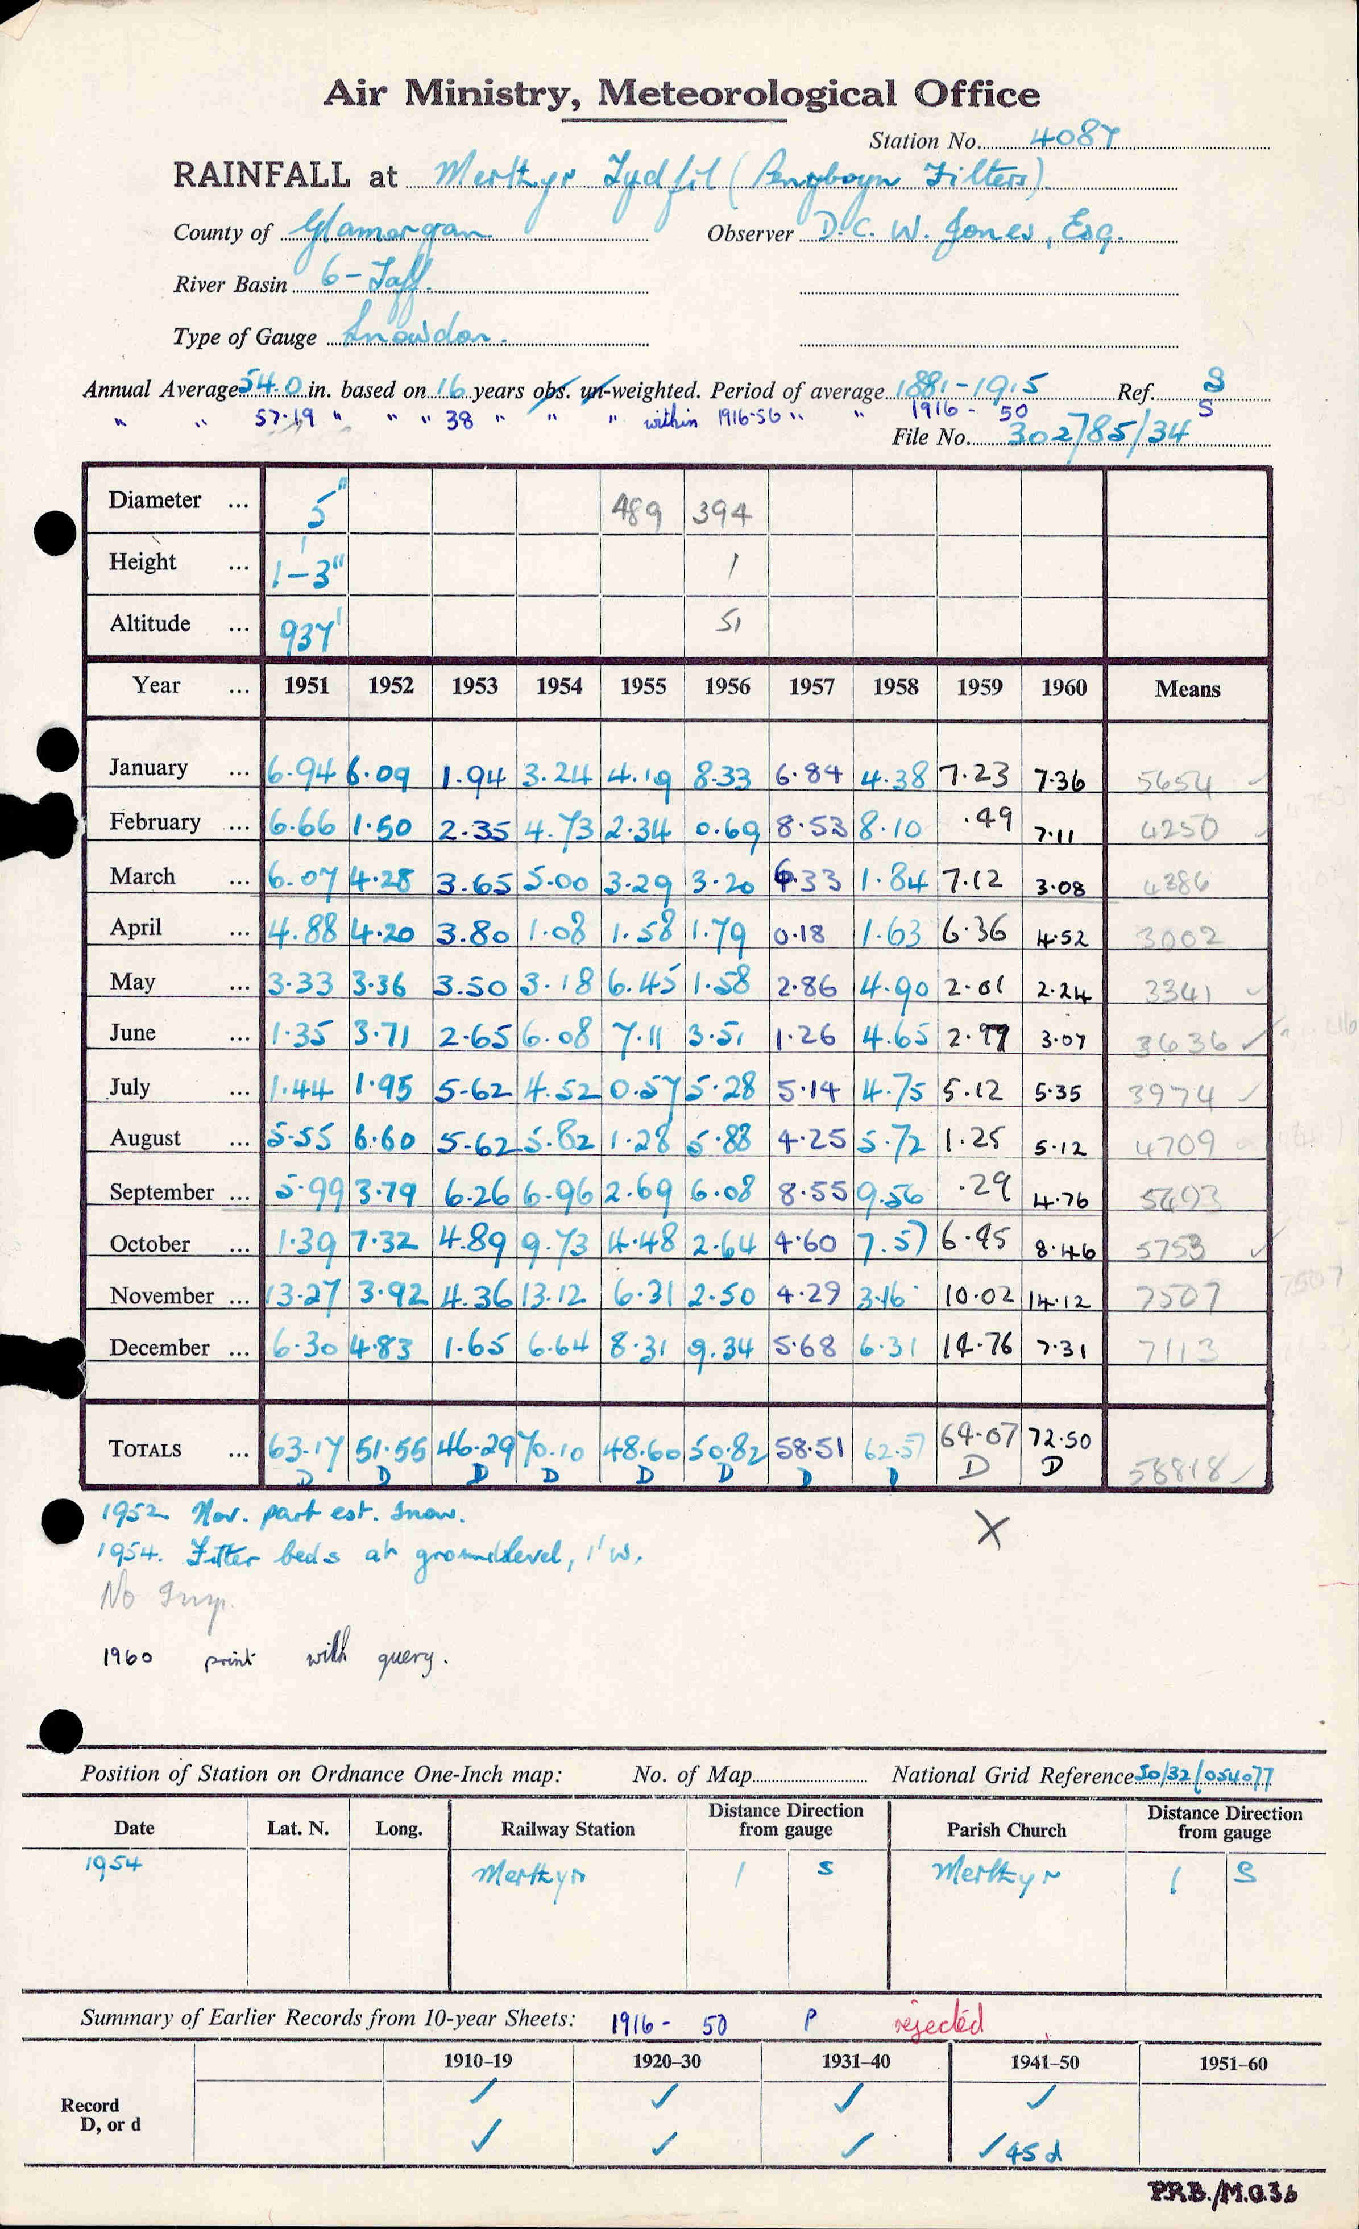 Air Ministry, Meteorological Office
Station No. 4087
RAINFALL at Merthyr Tydfil (Penybryn Filters)
County of Glamorgan. Observer D.C. W. Jones, Esq.
River Basin 6 - Taff.
Type of Gauge Snowdon.
Annual Average 54.0 in. based on 16 years obs. un-weighted. Period of average 1881-1915 Ref. S
" " 57.19 " " " 38 " " " within 1916-50 " " 1916 - 50 S
File No. 302785/34
Diameter ... 5" 489 394
Height ... 1'-3" 1
Altitude ... 937' 51
Year ... 1951 1952 1953 1954 1955 1956 1957 1958 1959 1960 Means
January ... 6.94 6.09 1.94 3.24 4.19 8.33 6.84 4.38 7.23 7.36 5654
February ... 6.66 1.50 2.35 4.73 2.34 0.69 8.53 8.10 .49 7.11 4250
March ... 6.07 4.28 3.65 5.00 3.29 3.20 6.33 1.84 7.12 3.08 4386
April ... 4.88 4.20 3.80 1.08 1.58 1.79 0.18 1.63 6.36 4.52 3002
May ... 3.33 3.36 3.50 3.18 6.45 1.58 2.86 4.90 2.01 2.24 3341
June ... 1.35 3.71 2.65 6.08 7.11 3.51 1.26 4.65 2.97 3.07 3636
July ... 1.44 1.95 5.62 4.52 0.57 5.28 5.14 4.75 5.12 5.35 3974
August ... 5.55 6.60 5.62 5.82 1.28 5.88 4.25 5.72 1.25 5.12 4709
September ... 5.99 3.79 6.26 6.96 2.69 6.08 8.55 9.56 .29 4.76 5493
October ... 1.39 7.32 4.89 9.73 4.48 2.64 4.60 7.57 6.45 8.46 5753
November ... 13.27 3.92 4.36 13.12 6.31 2.50 4.29 3.16 10.02 14.12 7507
December ... 6.30 4.83 1.65 6.64 8.31 9.34 5.68 6.31 14.76 7.31 7113
TOTALS ... 63.17 51.55 46.29 70.10 48.60 50.82 58.51 62.57 64.07 72.50 58818
D D D D D D D D D D
1952 Nov. part est. snow.
1954. Filter beds at ground level, 1' W.
No Insp.
1960 print with query.
Position of Station on Ordnance One-Inch map: No. of Map National Grid Reference SO/32/054077
Date Lat. N. Long. Railway Station Distance Direction from gauge Parish Church Distance Direction from gauge
1954 Merthyr 1 S Merthyr 1 S
Summary of Earlier Records from 10-year Sheets: 1916 - 50 P rejected
1910–19 1920–30 1931–40 1941–50 1951–60
Record
D, or d ✓ ✓ ✓ ✓
✓ ✓ ✓ ✓ 45 d
P.R.B./M.O.36